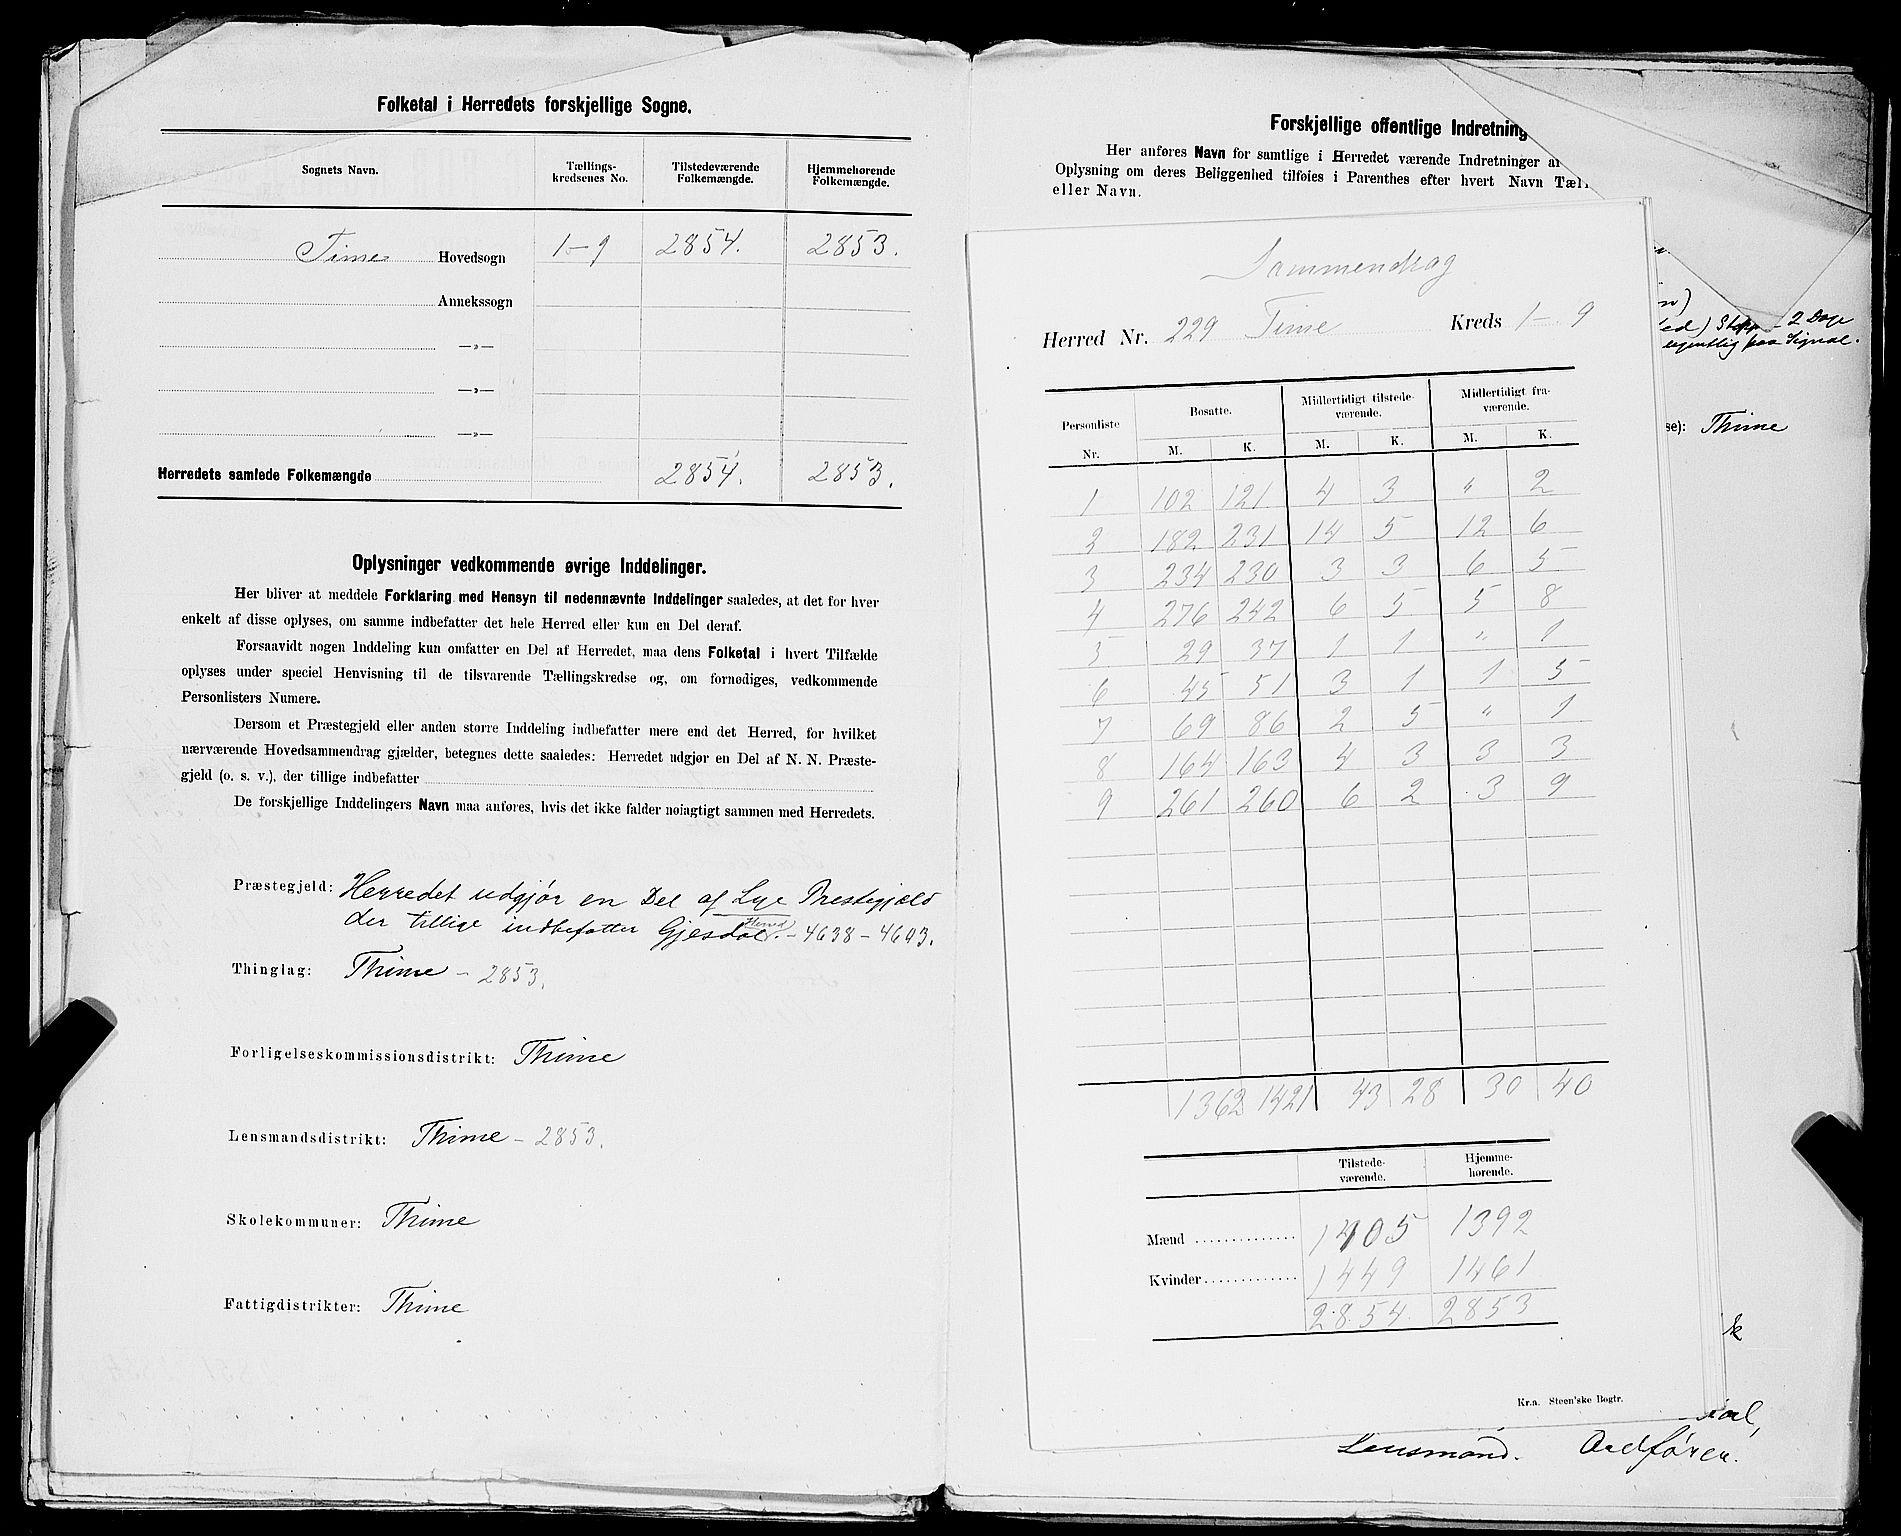 Folketal i Herredets forskjellige Sogne.
Sognets Navn. Tællings-kredsenes No. Tilstedeværende Folkemængde. Hjemmehørende Folkemængde.
Time Hovedsogn 1-9 2854. 2853.
Annekssogn
—„—
—„—
—„—
Herredets samlede Folkemængde 2854. 2853.
Oplysninger vedkommende øvrige Inddelinger.
Her bliver at meddele Forklaring med Hensyn til nedennævnte Inddelinger saaledes, at det for hver
enkelt af disse oplyses, om samme indbefatter det hele Herred eller kun en Del deraf.
Forsaavidt nogen Inddeling kun omfatter en Del af Herredet, maa dens Folketal i hvert Tilfælde
oplyses under speciel Henvisning til de tilsvarende Tællingskredse og, om fornødiges, vedkommende
Personlisters Numere.
Dersom et Præstegjeld eller anden større Inddeling indbefatter mere end det Herred, for hvilket
nærværende Hovedsammendrag gjælder, betegnes dette saaledes: Herredet udgjør en Del af N. N. Præste-
gjeld (o. s. v.), der tillige indbefatter
De forskjellige Inddelingers Navn maa anføres, hvis det ikke falder nøiagtigt sammen med Herredets.
Præstegjeld: Herredet udgjør en Del af Lye Prestegjæld
der tillige indbefatter Gjesdal Herred. - 4638 - 4603.
Thinglag: Thime - 2853.
Forligelseskommissionsdistrikt: Thime
Lensmandsdistrikt: Thime - 2853.
Skolekommuner: Thime
Fattigdistrikter: Thime
Forskjellige offentlige Indretning
Her anføres Navn for samtlige i Herredet værende Indretninger a
Oplysning om deres Beliggenhed tilføies i Parenthes efter hvert Navn Tæl
eller Navn.
2 Dage
egentlig paa Signal.
se): Thime
Sammendrag
Herred Nr. 229 Time Kreds 1-9
Personliste Nr. Bosatte. Midlertidigt tilstede-værende. Midlertidigt fra-værende.
M. K. M. K. M. K.
1 102 121 4 3 " 2
2 182 231 14 5 12 6
3 234 230 3 3 6 5
4 276 242 6 5 5 8
5 29 37 1 1 " 1
6 45 51 3 1 1 5
7 69 86 2 5 " 1
8 164 163 4 3 3 3
9 261 260 6 2 3 9
1362 1421 43 28 30 40
Tilstede-værende. Hjemme-hørende.
Mænd 1405 1392
Kvinder 1449 1461
2854. 2853
Kr.a. Steen'ske Bogtr.
Lensmand. Ordfører.